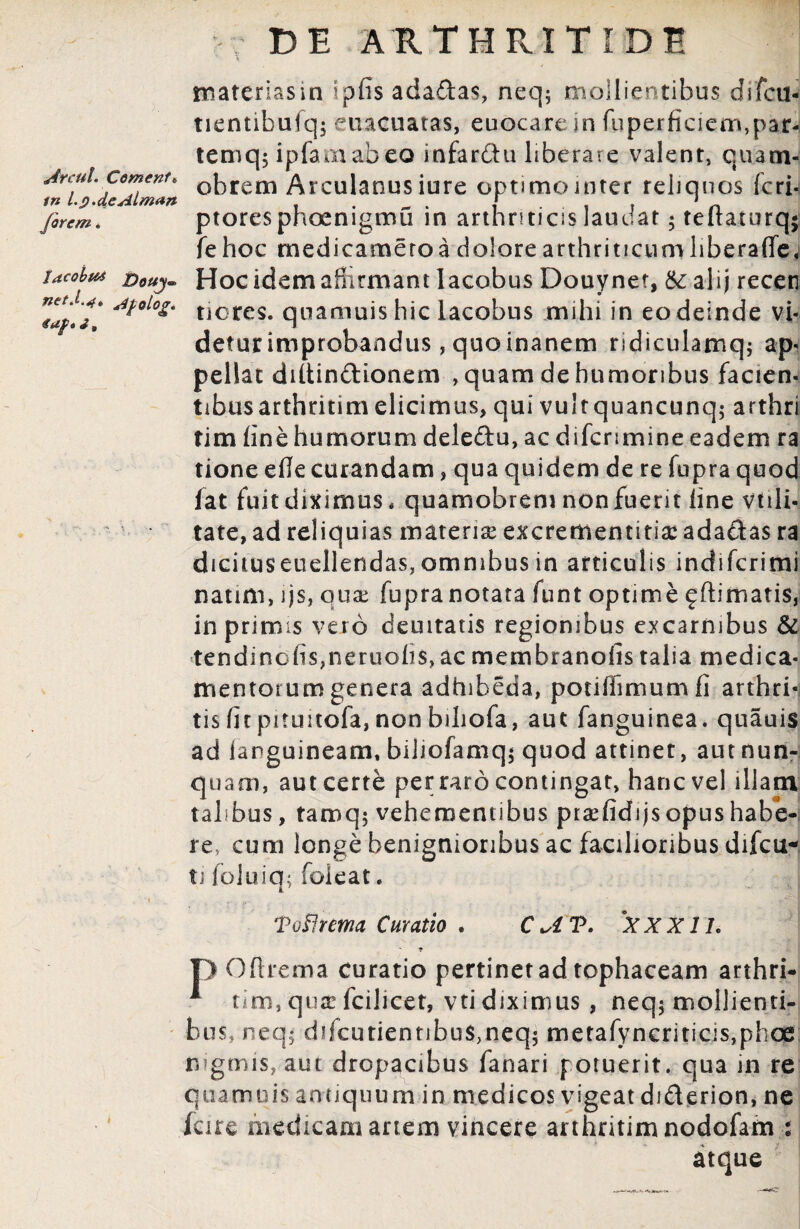 DE ARTHRITIDE
materias in ipſis adactas, neq; mollientibus diſcu-
tientibuſq; euacuatas, euocare in ſuperficiem, par-
temq; ipſam ab eo infarctu liberare valent, quam-
Arcul. Coment.
in l.9.de Alman
ſorem.
obrem Arculanus iure optimo inter reliquos ſcri-
ptores phœnigmũ in arthriticis laudat; teſtaturq;
ſe hoc medicamẽto à dolore arthriticum liberaſſe.
Iacobus Douy-
net.l.4. Apolog.
cap. 2,
Hoc idem affirmant Iacobus Douynet, & alij recen
tiores. quamuis hic Iacobus mihi in eo deinde vi-
detur improbandus, quo inanem ridiculamq; ap-
pellat diſtinctionem, quam de humoribus facien-
tibus arthritim elicimus, qui vult quancunq; arthri
tim ſinè humorum delectu, ac diſcrimine eadem ra
tione eſſe curandam, qua quidem de re ſupra quod
ſat fuit diximus. quamobrem non fuerit ſine vtili-
tate, ad reliquias materiæ excrementitiæ adactas ra
dicitus euellendas, omnibus in articulis indiſcrimi
natim, ijs, quæ ſupra notata ſunt optimè ęſtimatis,
in primis verò deuitatis regionibus excarnibus &
tendinoſis, neruoſis, ac membranoſis talia medica-
mentorum genera adhibẽda, potiſſimum ſi arthri-
tis ſit pituitoſa, non bilioſa, aut ſanguinea. quãuis
ad ſanguineam, bilioſamq; quod attinet, aut nun-
quam, aut certè per rarò contingat, hanc vel illam
talibus, tamq; vehementibus præſidijs opus habe-
re, cum longè benignioribus ac facilioribus diſcu-
ti ſoluiq; ſoleat.
Poſtrema Curatio . CAP. XXXII.
POſtrema curatio pertinet ad tophaceam arthri-
tim, quæ ſcilicet, vti diximus, neq; mollienti-
bus, neq; diſcutientibus, neq; metaſyncriticis, phœ
nigmis, aut dropacibus ſanari potuerit. qua in re
quamuis antiquum in medicos vigeat dicterion, ne
ſcire medicam artem vincere arthritim nodoſam :
atque